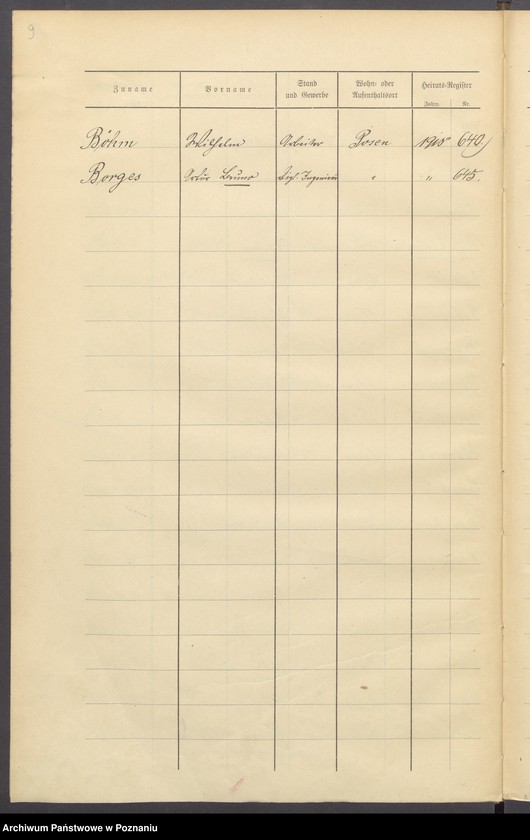 9
Zuname Vorname Stand und Gewerbe Wohn- oder Aufenthaltsort Heirats-Register
Jahr. Nr.
Böhm Wilhelm Arbeiter Posen 1915 640
Borges Artur Bruno Dipl. Ingenieur " " 645.
Archiwum Państwowe w Poznaniu